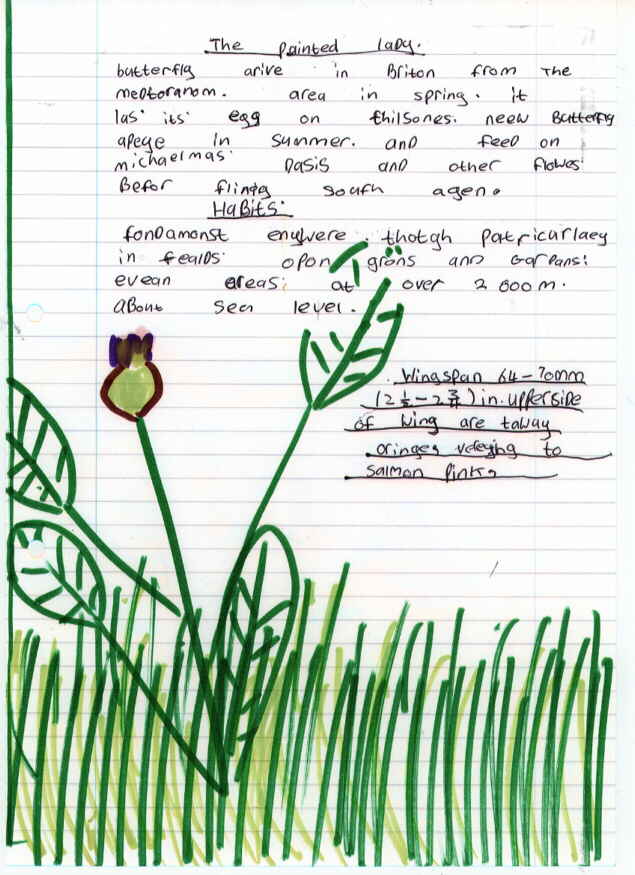 The painted lady.
butterfly arive in Briton from The
medtoranom. area in spring. it
las its egg on thilsones. neew Butterfly
apeye in summer. and feed on
michaelmas Dasis and other flowes
Befor flinig south agen.
Habits.
fondamonst enywere. thotgh patricurlaey
in fealds. opon grons and Garpans.
evean areas. at over 2 000m.
about sea level.
Wingspan 64-70mm
(2 ½-2 ¾) in. upperside
of wing are taway
oringes vereying to
Salmon Pink.